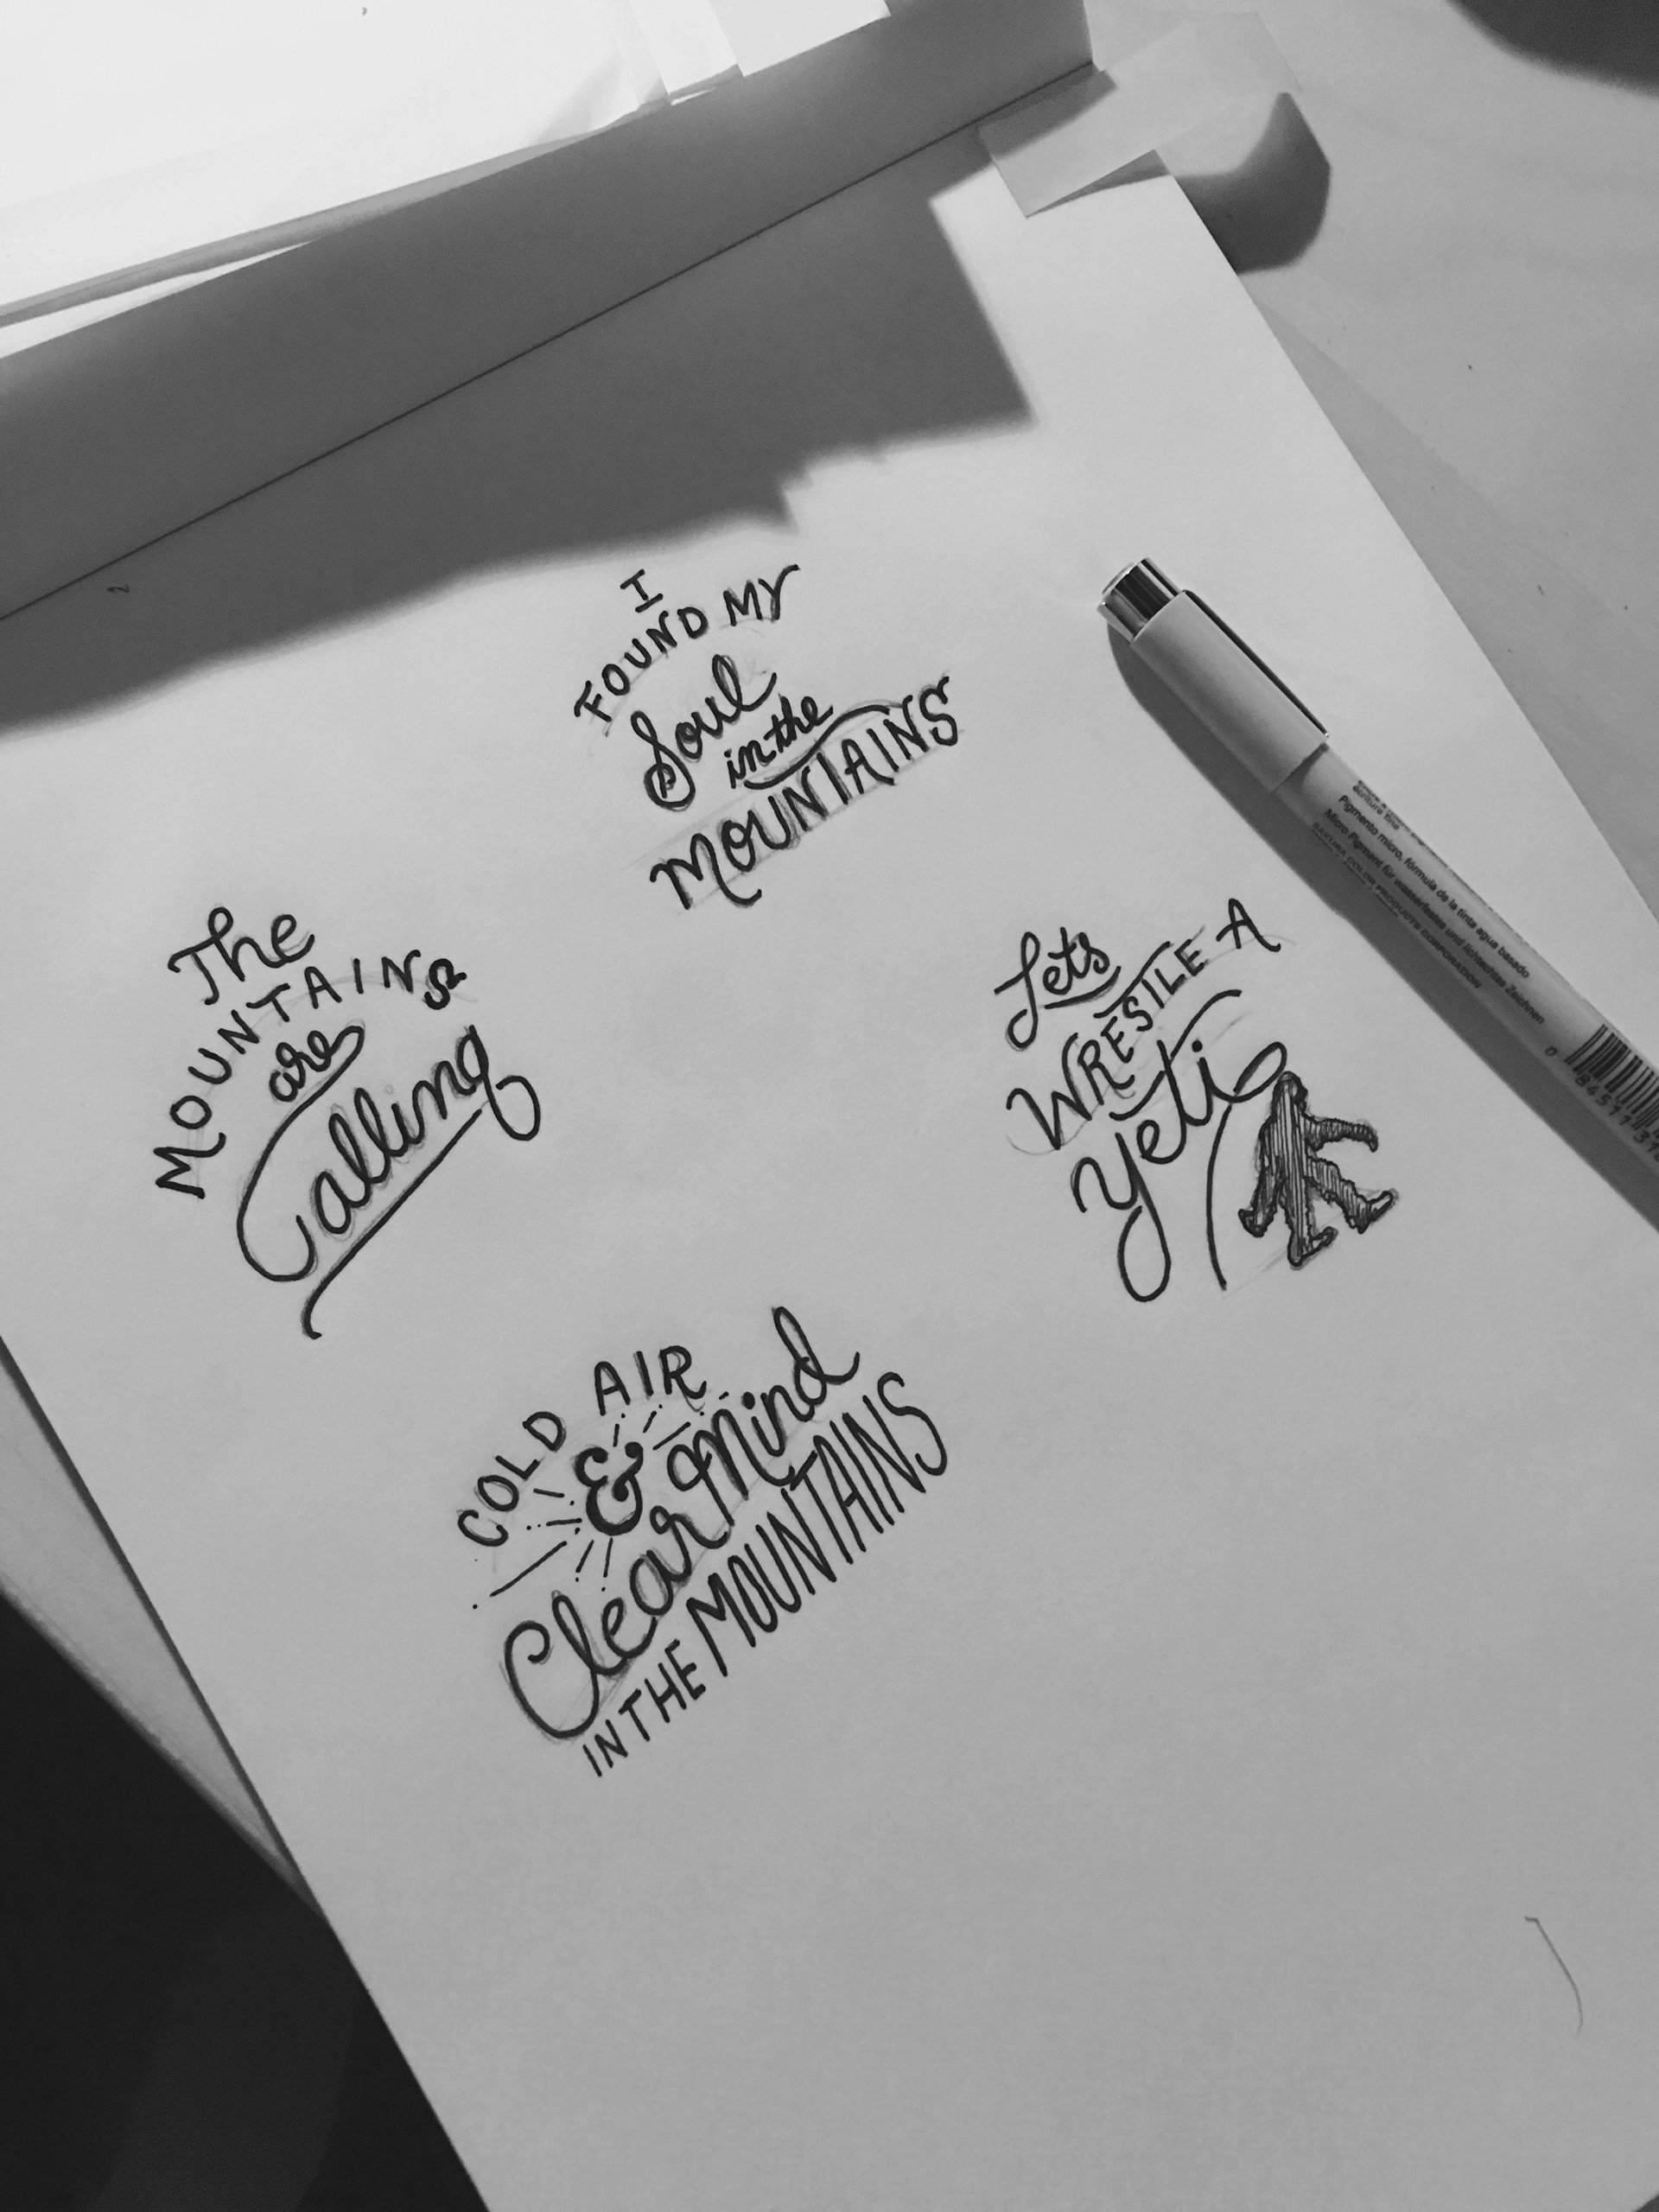 I
FOUND MY
Soul
in the
MOUNTAINS
The
MOUNTAINS
are
Calling
Lets
WRESTLE A
Yeti
COLD AIR
&
Clear Mind
IN THE MOUNTAINS
Pigmento micro, fórmula de la tinta agua basado
Micro Pigment für wasserfestes und lichtechtes Zeichnen
SAKURA COLOR PRODUCTS CORPORATION